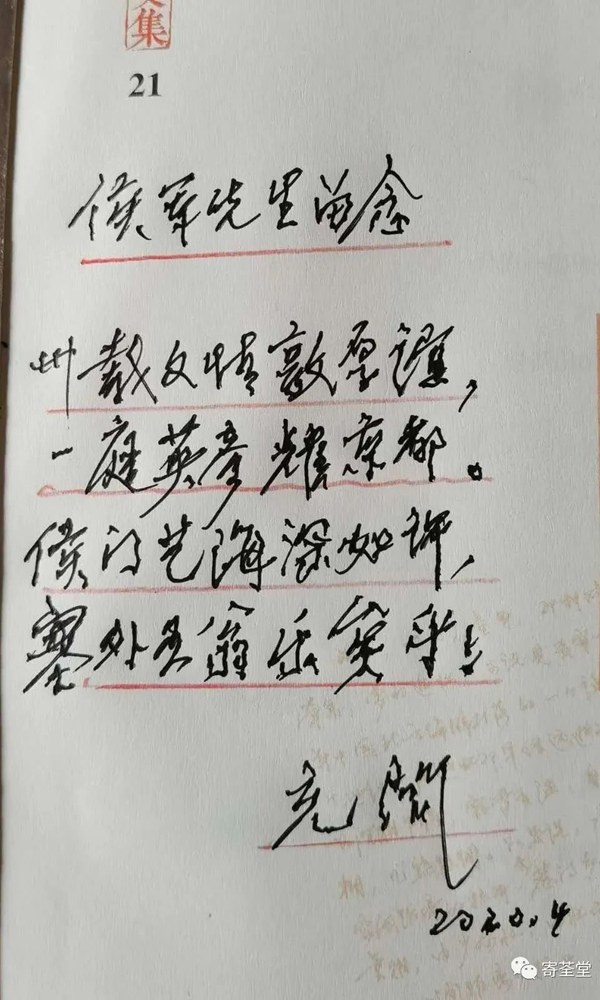 集
21
侯军先生留念
卅载文情敦厚谊,
一庭英彦耀京都。
侯门艺海深如许,
塞外翁乐
充闾
2020.4
寄荃堂